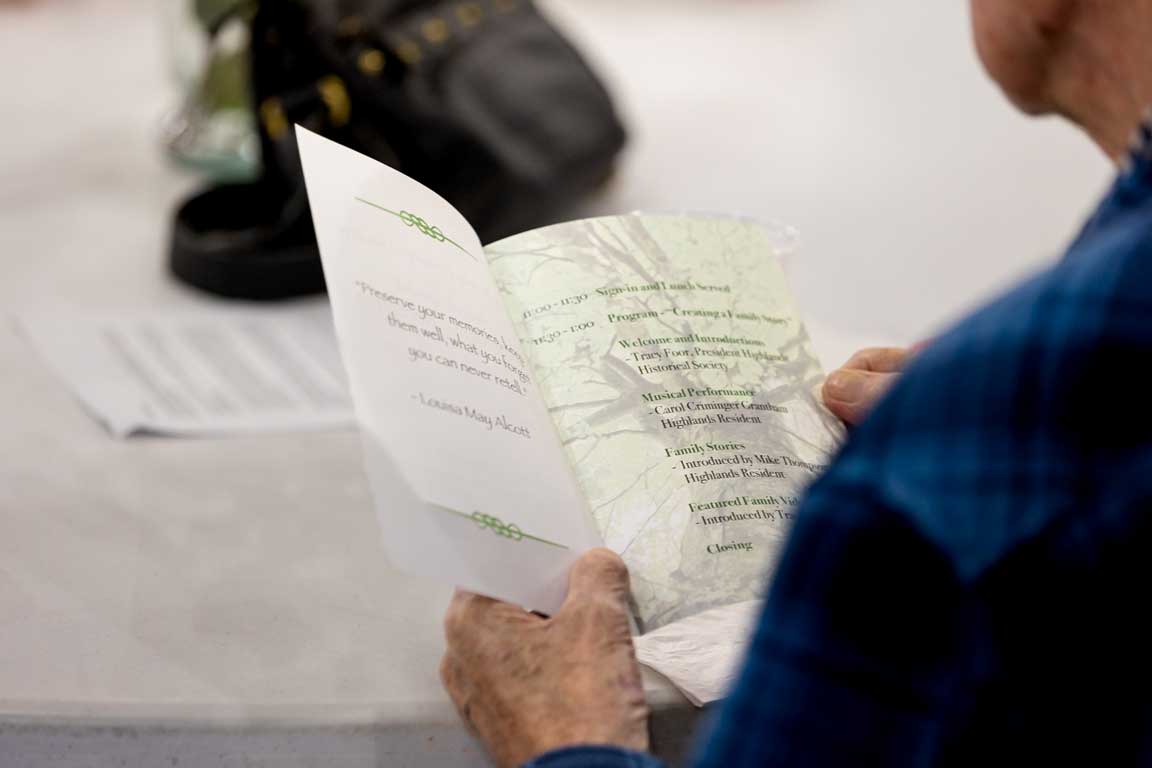 "Preserve your memories, keep
them well, what you forget
you can never retell."
- Louisa May Alcott
11:00 - 11:30 Sign-in and Lunch Served
11:30 - 1:00 Program - "Creating a Family Story"
Welcome and Introductions
- Tracy Foor, President Highlands
Historical Society
Musical Performance
- Carol Criminger Grantham
Highlands Resident
Family Stories
- Introduced by Mike Thompson
Highlands Resident
Featured Family
- Introduced by
Closing